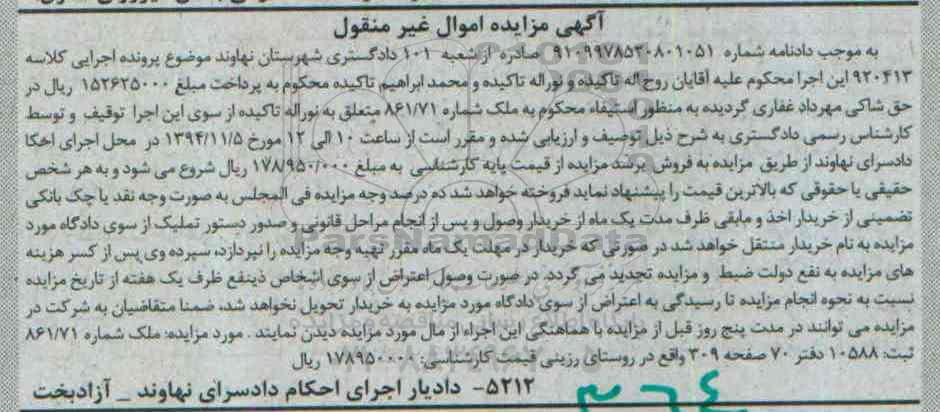 آگهی مزایده اموال غیر منقول
به موجب دادنامه شماره ۹۱۰۹۹۷۸۵۳۰۸۰۱۰۵۱ صادره از شعبه ۱۰۱ دادگستری شهرستان نهاوند موضوع پرونده اجرایی کلاسه
۹۲۰۴۱۳ این اجرا محکوم علیه آقایان روح اله تاکیده و نوراله تاکیده و محمد ابراهیم تاکیده محکوم به پرداخت مبلغ ۱۵۲۶۲۵۰۰۰ ریال در
حق شاکی مهرداد غفاری گردیده به منظور استیفاء محکوم به ملک شماره ۸۶۱/۷۱ متعلق به نوراله تاکیده از سوی این اجرا توقیف و توسط
کارشناس رسمی دادگستری به شرح ذیل توصیف و ارزیابی شده و مقرر است از ساعت ۱۰ الی ۱۲ مورخ ۱۳۹۴/۱۱/۵ در محل اجرای احکا
دادسرای نهاوند از طریق مزایده به فروش برسد مزایده از قیمت پایه کارشناسی به مبلغ ۱۷۸/۹۵۰/۰۰۰ ریال شروع می شود و به هر شخص
حقیقی یا حقوقی که بالاترین قیمت را پیشنهاد نماید فروخته خواهد شد ده درصد وجه مزایده فی المجلس به صورت وجه نقد یا چک بانکی
تضمینی از خریدار اخذ و مابقی ظرف مدت یک ماه از خریدار وصول و پس از انجام مراحل قانونی و صدور دستور تملیک از سوی دادگاه مورد
مزایده به نام خریدار منتقل خواهد شد در صورتی که خریدار در مهلت یک ماه مقرر تهیه وجه مزایده را نپردازد، سپرده وی پس از کسر هزینه
های مزایده به نفع دولت ضبط و مزایده تجدید می گردد. در صورت وصول اعتراض از سوی اشخاص ذینفع ظرف یک هفته از تاریخ مزایده
نسبت به نحوه انجام مزایده تا رسیدگی به اعتراض از سوی دادگاه مورد مزایده به خریدار تحویل نخواهد شد، ضمنا متقاضیان به شرکت در
مزایده می توانند در مدت پنج روز قبل از مزایده با هماهنگی این اجراء از مال مورد مزایده دیدن نمایند . مورد مزایده: ملک شماره ۸۶۱/۷۱
ثبت: ۱۰۵۸۸ دفتر ۷۰ صفحه ۳۰۹ واقع در روستای رزینی قیمت کارشناسی: ۱۷۸۹۵۰۰۰۰ ریال
۵۲۱۲- دادیار اجرای احکام دادسرای نهاوند _ آزادبخت